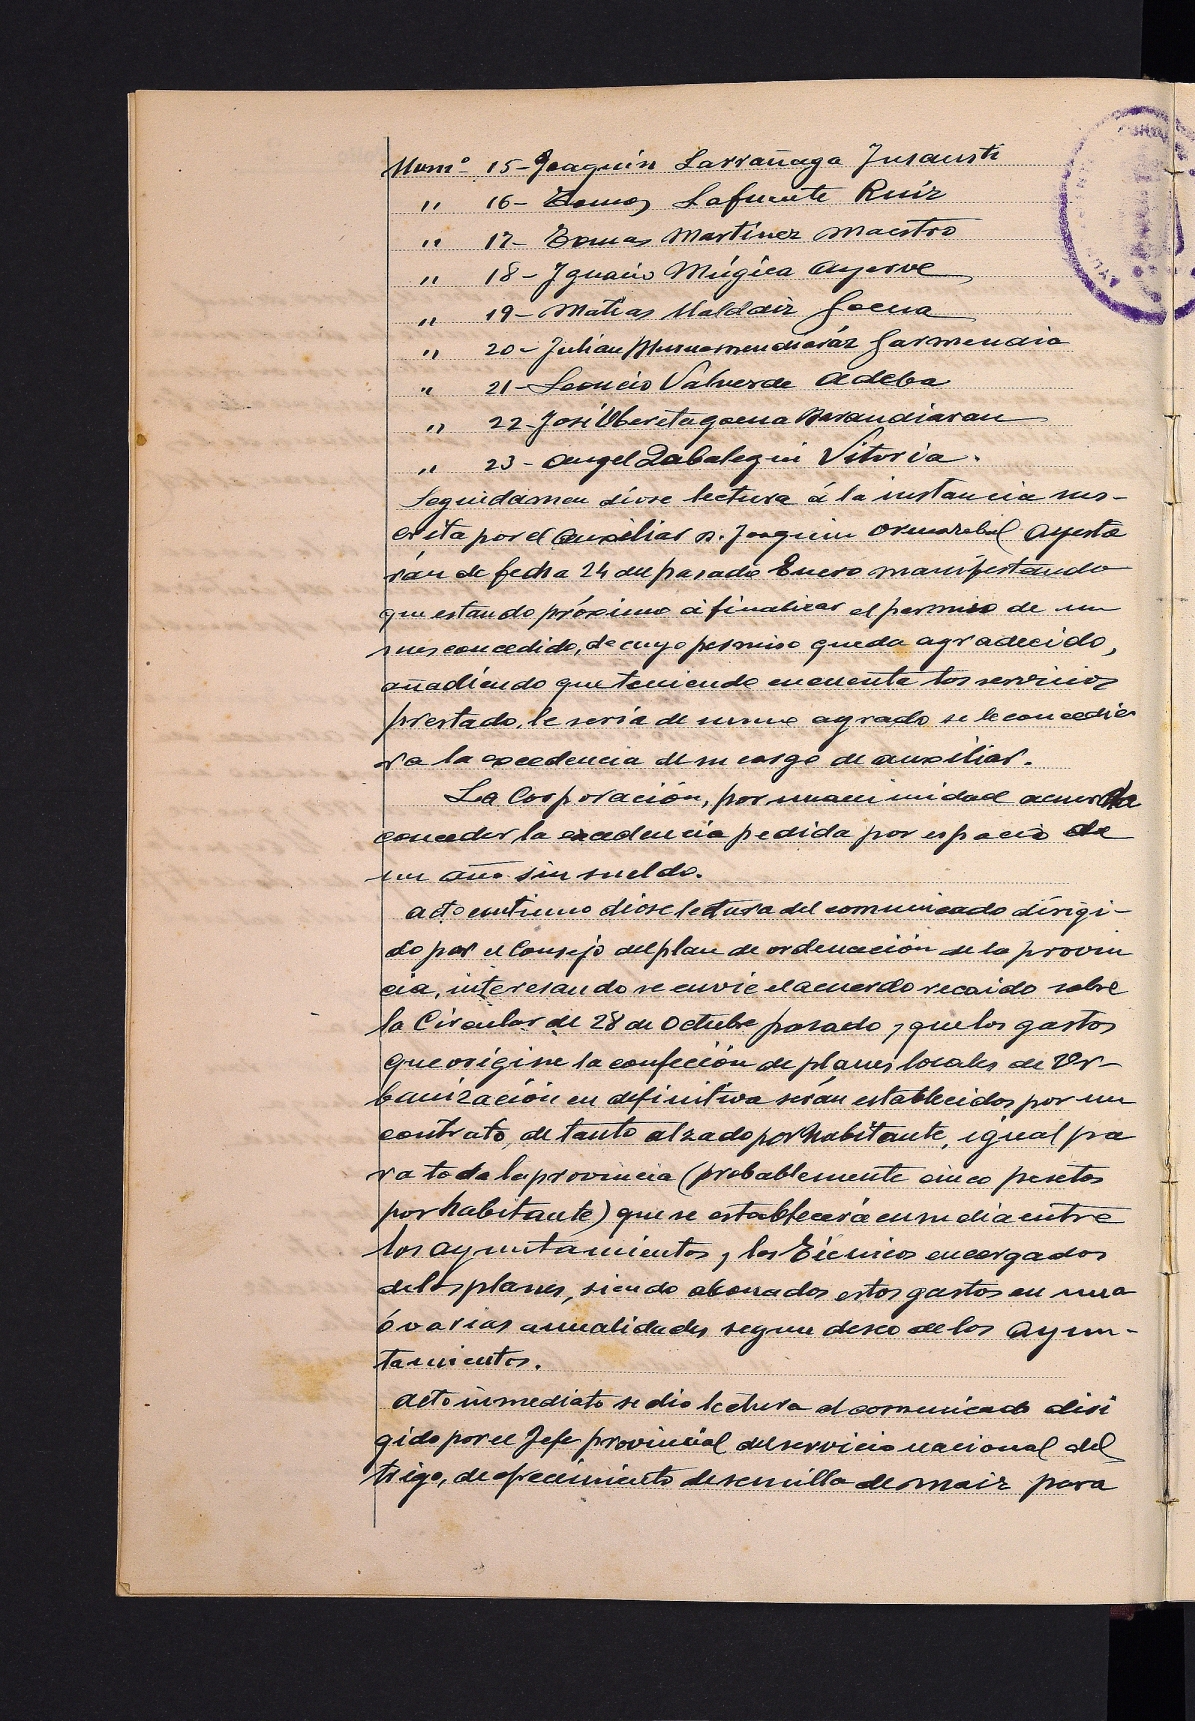 Numº 15- Joaquín Larrañaga Insausti
" 16- Tomas Lafuente Ruiz
" 17- Tomas Martínez Maestro
" 18- Ignacio Múgica Ayerve
" 19- Matias Naldaiz Goena
" 20- Julian Murumendiaráz Garmendia
" 21- Leoncio Valverde Adeba
" 22- José Uberetagoena Barandiaran
" 23- Angel Zabalegui Vitoria.
Seguidamen diose lectura á la instancia sus-
crita por el Auxiliar D. Joaquin Ormazabal Ayesta
rán de fecha 24 del pasado Enero manifestando
que estando próximo á finalizar el permiso de un
mes concedido, de cuyo permiso queda agradecido,
añadiendo que teniendo en cuenta los servicios
prestado, le sería de sumo agrado se le concedie
ra la excedencia de su cargo de auxiliar.
La Corporación, por unanimidad acuerda
conceder la excedencia pedida por espacio de
un año sin sueldo.
Acto continuo diose lectura del comunicado dirigi-
do por el Consejo del plan de ordenación de la provin
cia, interesando se envie el acuerdo recaido sobre
la Circular de 28 de Octubre pasado, y que los gastos
que origine la confeción de planes locales de Ur-
banización en definitiva serán establecidos por un
contrato, de tanto alzado por habitante, igual pa
ra toda la provincia (probablemente cinco pesetas
por habitante) que se establecerá en su dia entre
los Ayuntamientos, y los Técnicos encargados
de los planes, siendo abonados estos gastos en una
ó varias anualidades segun deseo de los Ayun-
tamientos.
Acto inmediato se dio lectura al comunicado diri
gido por el Jefe provincial del servicio nacional del
trigo, de ofrecimiento de semilla de maiz para